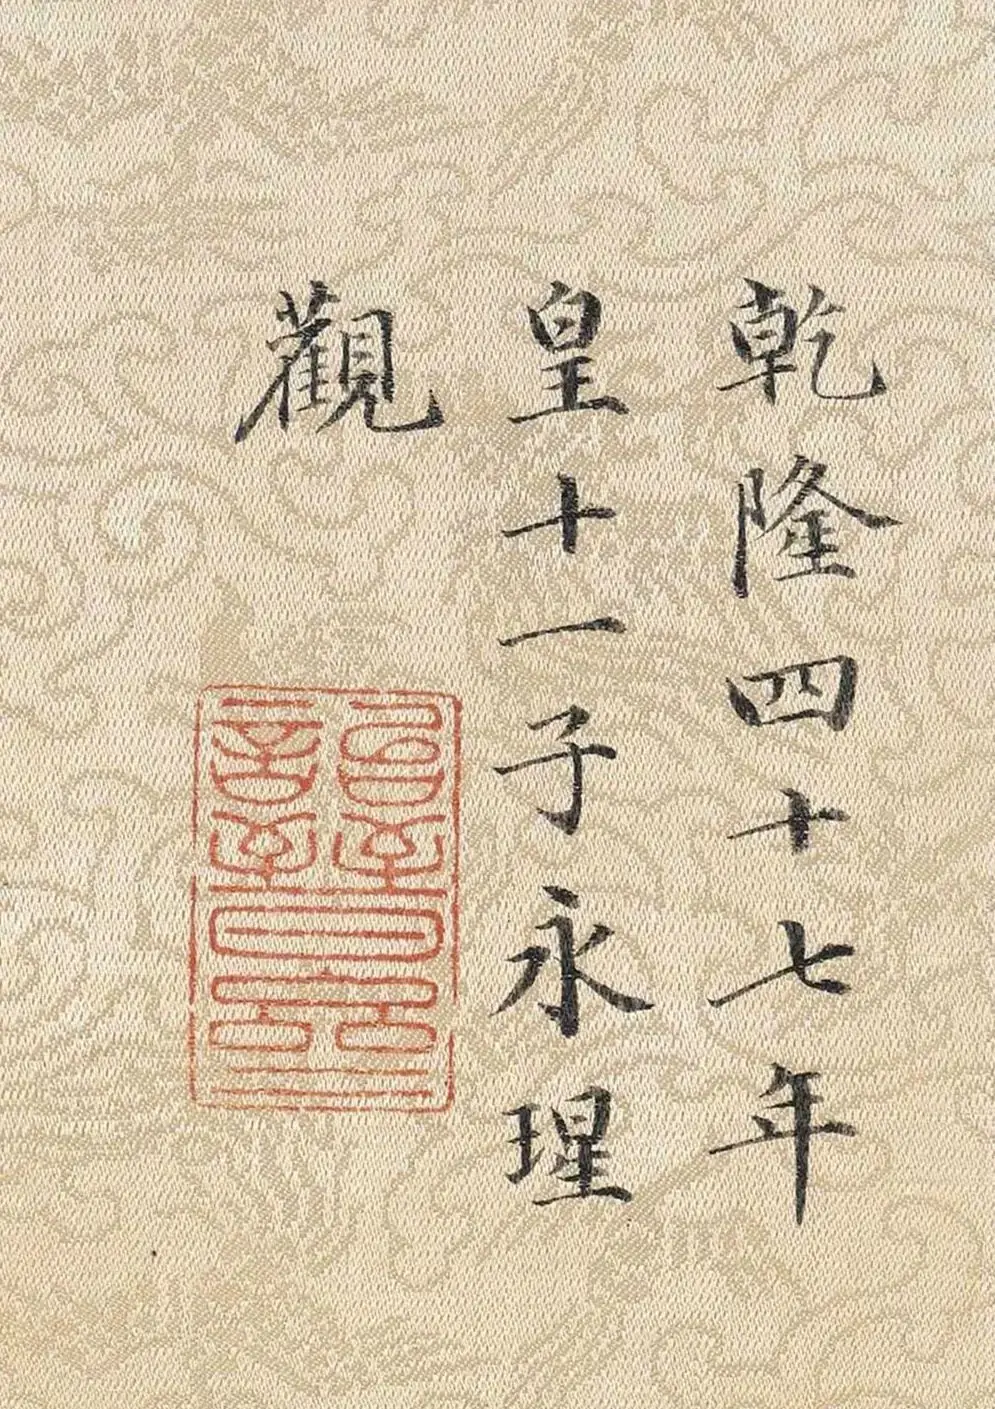 乾隆四十七年
皇十一子永瑆
觀